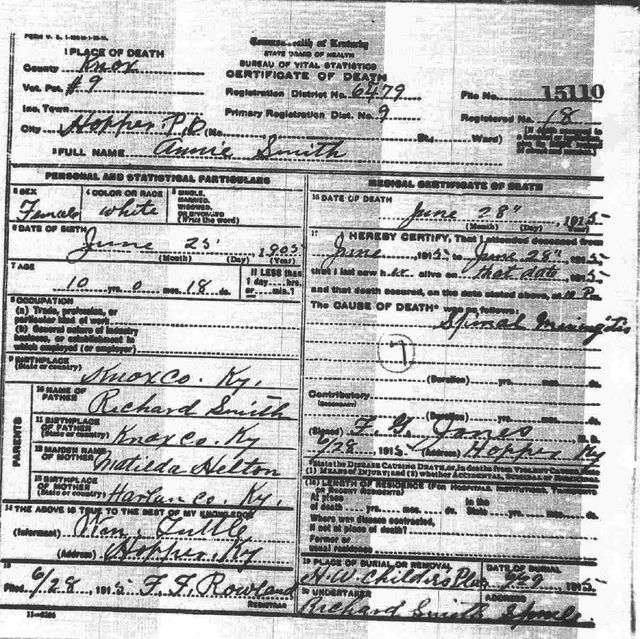 FORM V. S. 
Commonwealth of Kentucky
STATE BOARD OF HEALTH
BUREAU OF VITAL STATISTICS
CERTIFICATE OF DEATH
1 PLACE OF DEATH
County Knox
Vot. Pct. #9
Registration District No. 6479
File No. 15110
Inc. Town
Primary Registration Dist. No. 9
Registered No. 18
City Hopper P.O. (No. St., Ward)
2 FULL NAME Annie Smith
PERSONAL AND STATISTICAL PARTICULARS
3 SEX
Female
4 COLOR OR RACE
White
5 SINGLE, MARRIED, WIDOWED, OR DIVORCED
(Write the word)
6 DATE OF BIRTH
June 25 1905
(Month) (Day) (Year)
7 AGE
10 yrs. 0 mos. 18 ds.
If LESS than
1 day, hrs.
or min.?
8 OCCUPATION
(a) Trade, profession, or
particular kind of work
(b) General nature of industry
business, or establishment in
which employed (or employer)
9 BIRTHPLACE
(State or country)
Knox Co. Ky.
PARENTS
10 NAME OF FATHER
Richard Smith
11 BIRTHPLACE OF FATHER
(State or country)
Knox Co. Ky
12 MAIDEN NAME OF MOTHER
Matilda Helton
13 BIRTHPLACE OF MOTHER
(State or country)
Harlan Co. Ky.
14 THE ABOVE IS TRUE TO THE BEST OF MY KNOWLEDGE
(Informant) Wm. Tuttle
(Address) Hopper, Ky
15
Filed 6/28, 1915 Rowland
REGISTRAR
MEDICAL CERTIFICATE OF DEATH
16 DATE OF DEATH
June 28", 1915
(Month) (Day) (Year)
17 I HEREBY CERTIFY, That I attended deceased from
June, 1915 to June 28", 1915
that I last saw h er alive on that date, 1915
and that death occurred, on the date stated above, at m.
The CAUSE OF DEATH was as follows:
Spinal Meningitis
(Duration) yrs. mos. ds.
Contributory
(Duration) yrs. mos. ds.
(Signed) F. G. Jones M. D.
6/28, 1915 (Address) Hopper Ky
State the DISEASE CAUSING DEATH, or, in deaths from VIOLENT CAUSES,
(1) MEANS OF INJURY; and (2) whether ACCIDENTAL, SUICIDAL, or HOMICIDAL
18 LENGTH OF RESIDENCE (FOR HOSPITALS, INSTITUTIONS, TRANSIENTS
At Place of death yrs. mos. ds. In the State yrs. mos. ds.
Where was disease contracted,
if not at place of death?
Former or
usual residence
19 PLACE OF BURIAL OR REMOVAL
H. W. Childers Place
DATE OF BURIAL
1915
20 UNDERTAKER
Richard Smith
ADDRESS